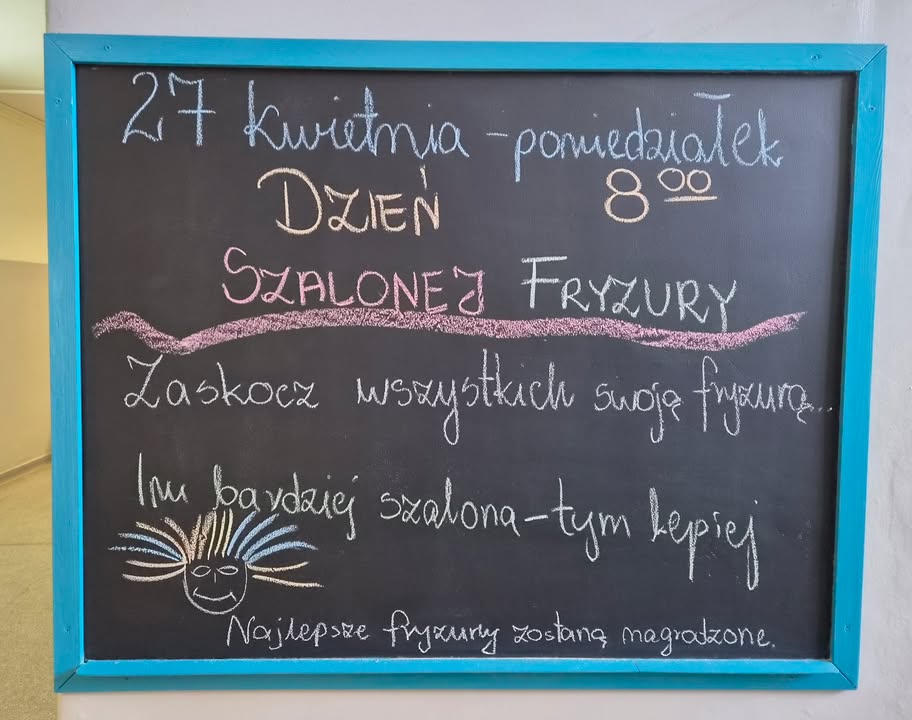 27 kwietnia - poniedziałek
DZIEŃ 8⁰⁰
SZALONEJ FRYZURY
Zaskocz wszystkich swoją fryzurą...
Im bardziej szalona - tym lepiej
Najlepsze fryzury zostaną nagrodzone.